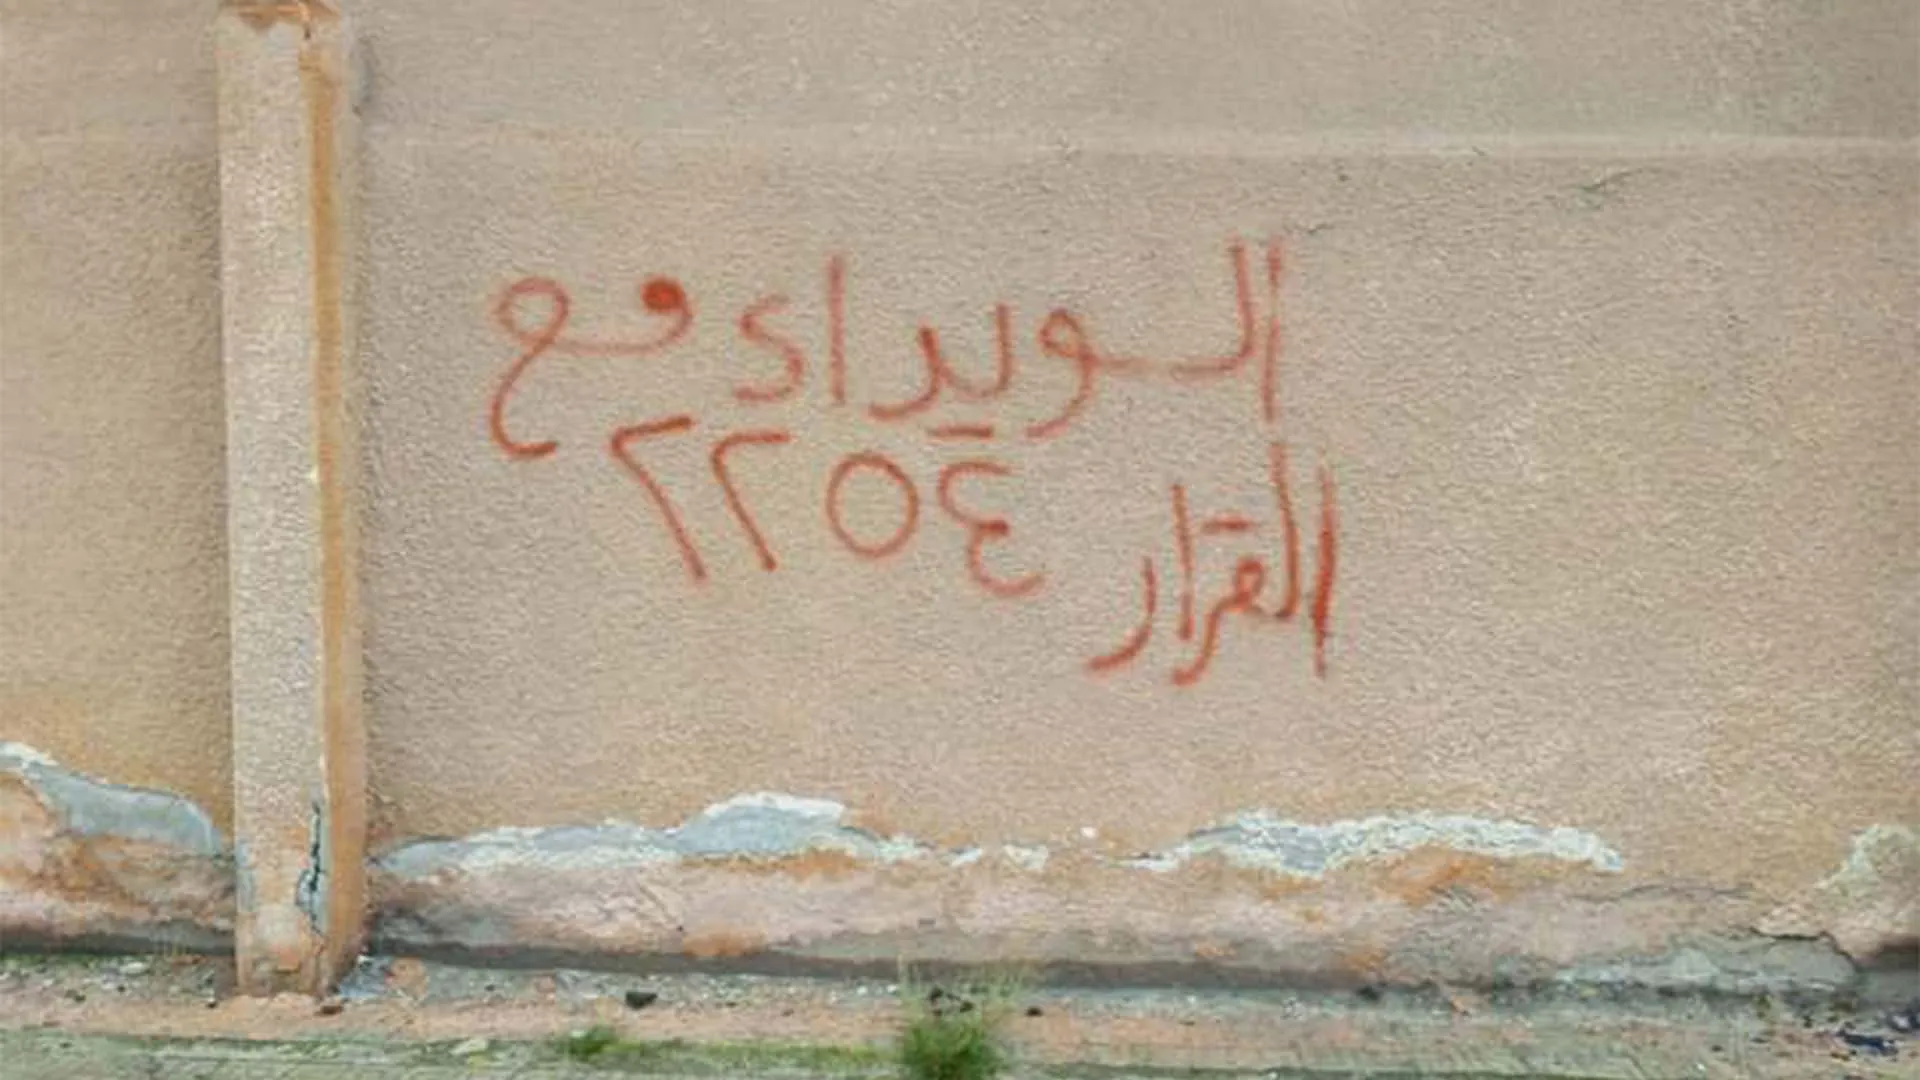 السويداء مع
القرار ٢٢٥٤